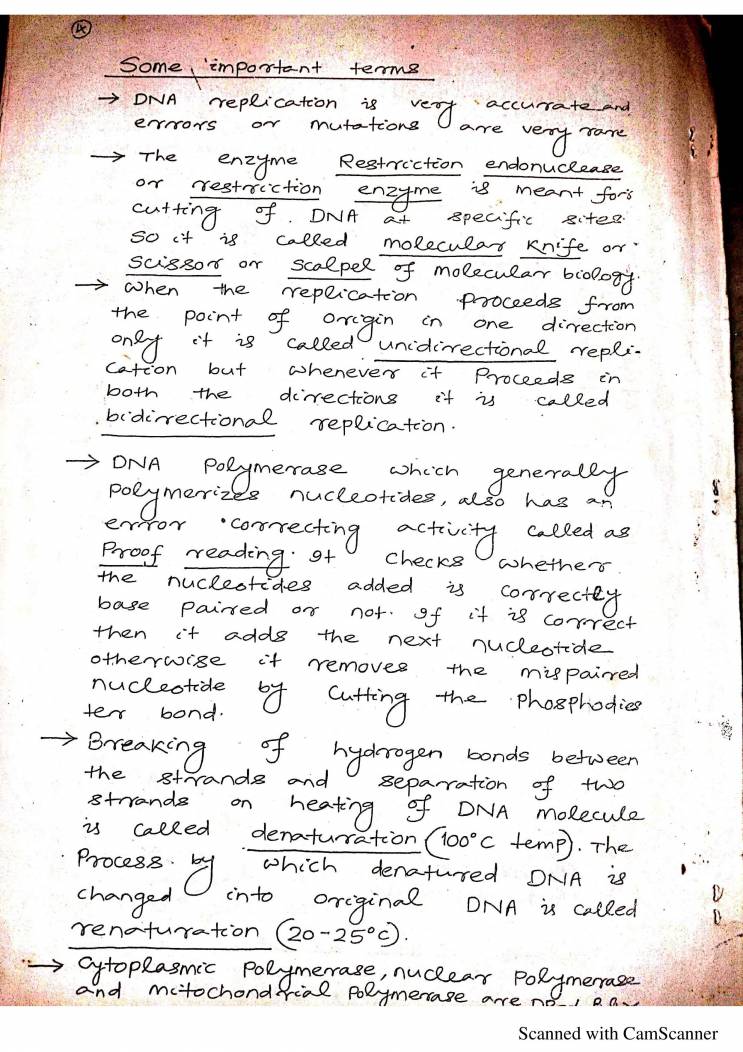 ④
Some important terms
→ DNA replication is very accurate and
errors or mutations are very rare
→ The enzyme Restriction endonuclease
or restriction enzyme is meant for
cutting of DNA at specific sites.
So it is called molecular knife or
scissor or scalpel of molecular biology.
→ When the replication proceeds from
the point of origin in one direction
only it is called unidirectional repli-
cation but whenever it proceeds in
both the directions it is called
bidirectional replication.
→ DNA Polymerase which generally
polymerizes nucleotides, also has an
error correcting activity called as
Proof reading. It checks whether
the nucleotides added is correctly
base paired or not. If it is correct
then it adds the next nucleotide
otherwise it removes the mispaired
nucleotide by cutting the Phosphodies
ter bond.
→ Breaking of hydrogen bonds between
the strands and separation of two
strands on heating of DNA molecule
is called denaturation (100°C temp). The
Process by which denatured DNA is
changed into original DNA is called
renaturation (20-25°C).
→ Cytoplasmic Polymerase, nuclear Polymerase
and mitochondrial Polymerase are
Scanned with CamScanner